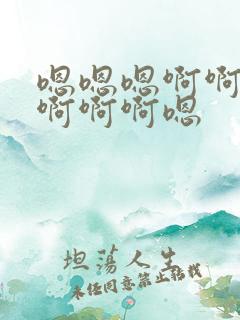 嗯嗯嗯啊啊
啊啊啊嗯
坦荡人生
未经同意禁止转载